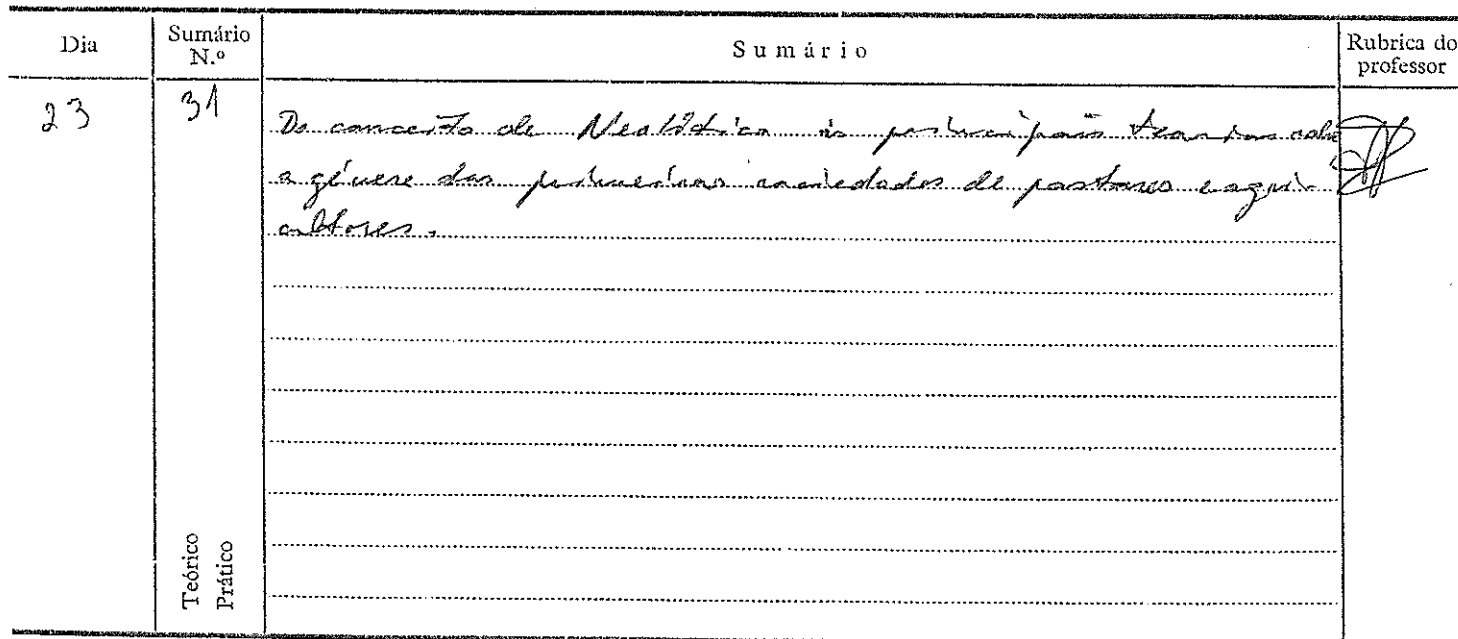 Dia
Sumário
N.º
Sumário
Rubrica do
professor
23
31
Do conceito de Neolítico às principais teorias sobre
a génese das primeiras sociedades de pastores e agri-
cultores.
Teórico
Prático